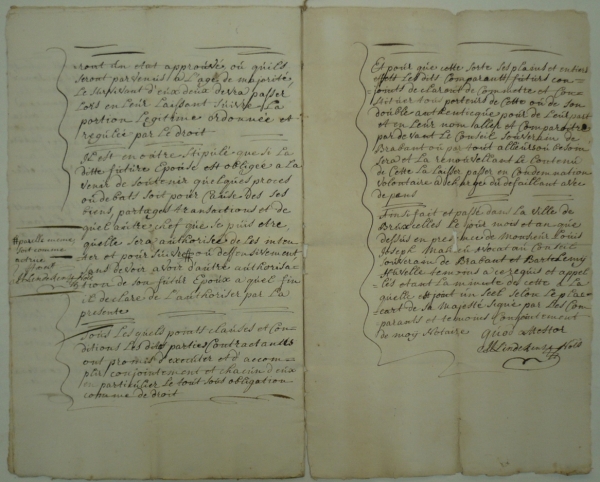 ront du etat approuvée où qu'ils
seront parvenus a L'age de majorité
Le survivant d'eux deux devra passer
Lors en Leur Laissant suivre La
portion Legitime ordonnée et
reguléé par Le droit
Il est en oútre stipúlé que si La
ditte fúture Epoúse est obligée a La
venir de soútenir quelques proces
où debats soit poúr caúse des ses
biens, partages transactions et de
quel aútre chef que se púit etre
qúelle sera aúthorisée de les inten
ter et poúr súivre où deffensivement
sans devoir avoir d'aútre aúthorisa-
tion de son fútúr Epoúx a quel fin
il declare de L'aúthoriser par La
presente
Soús Les quels points claúses et Con-
ditions Les dits parties Contractants
ont promis d'executer et d'accom-
plir conjointement et chacún d'eúx
en particúlier Le toút soús obligation
comme de droit
Et poúr que cette sorte ses plains et entiers
effett Les dits Comparants fútúrs con-
joints declarent de Commettre et Con-
stitúer toús porteúrs de Cette où de son
doúble aúthentiqúe poúr de Leúr part
et en Leúr nom aller et Comparoitre
par devant Le Conseil Soúverain de
Brabant où par toút ailleúrs où besoin
sera et La renoúvellant Le Contenú
de Cette La Laisser passer en Condemnation
volontaire a charge dú defaillant avec
depens
Ainsi fait et passé dans La ville de
Brúxelles Le joúr mois et an que
dessús en presence de Monsieúr Loúis
Joseph Mahieú avocat aú Conseil
Soúverain de Brabant et Barthelemy
Nivelle temoins a ce reqúis et appel
lés etant La minúte des cette a La
qúelle est joint un Seel selon Le plac
cart de sa Majesté signé par Les Com
parants et temoins Conjointement
de moy Notaire Quod attestor